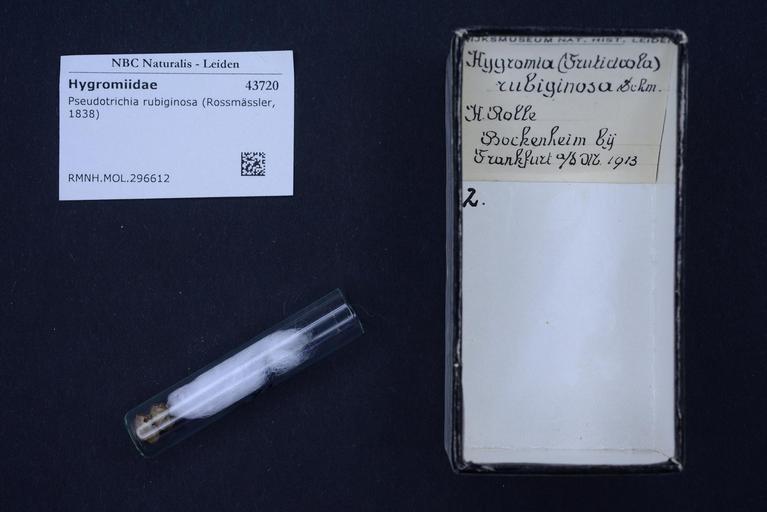 NBC Naturalis - Leiden
Hygromiidae 43720
Pseudotrichia rubiginosa (Rossmässler,
1838)
RMNH.MOL.296612
RIJKSMUSEUM NAT. HIST. LEIDEN
Hygromia (Fruticicola)
rubiginosa Schm.
H. Rolle
Bockenheim bij
Frankfurt a/d M. 1913
2.